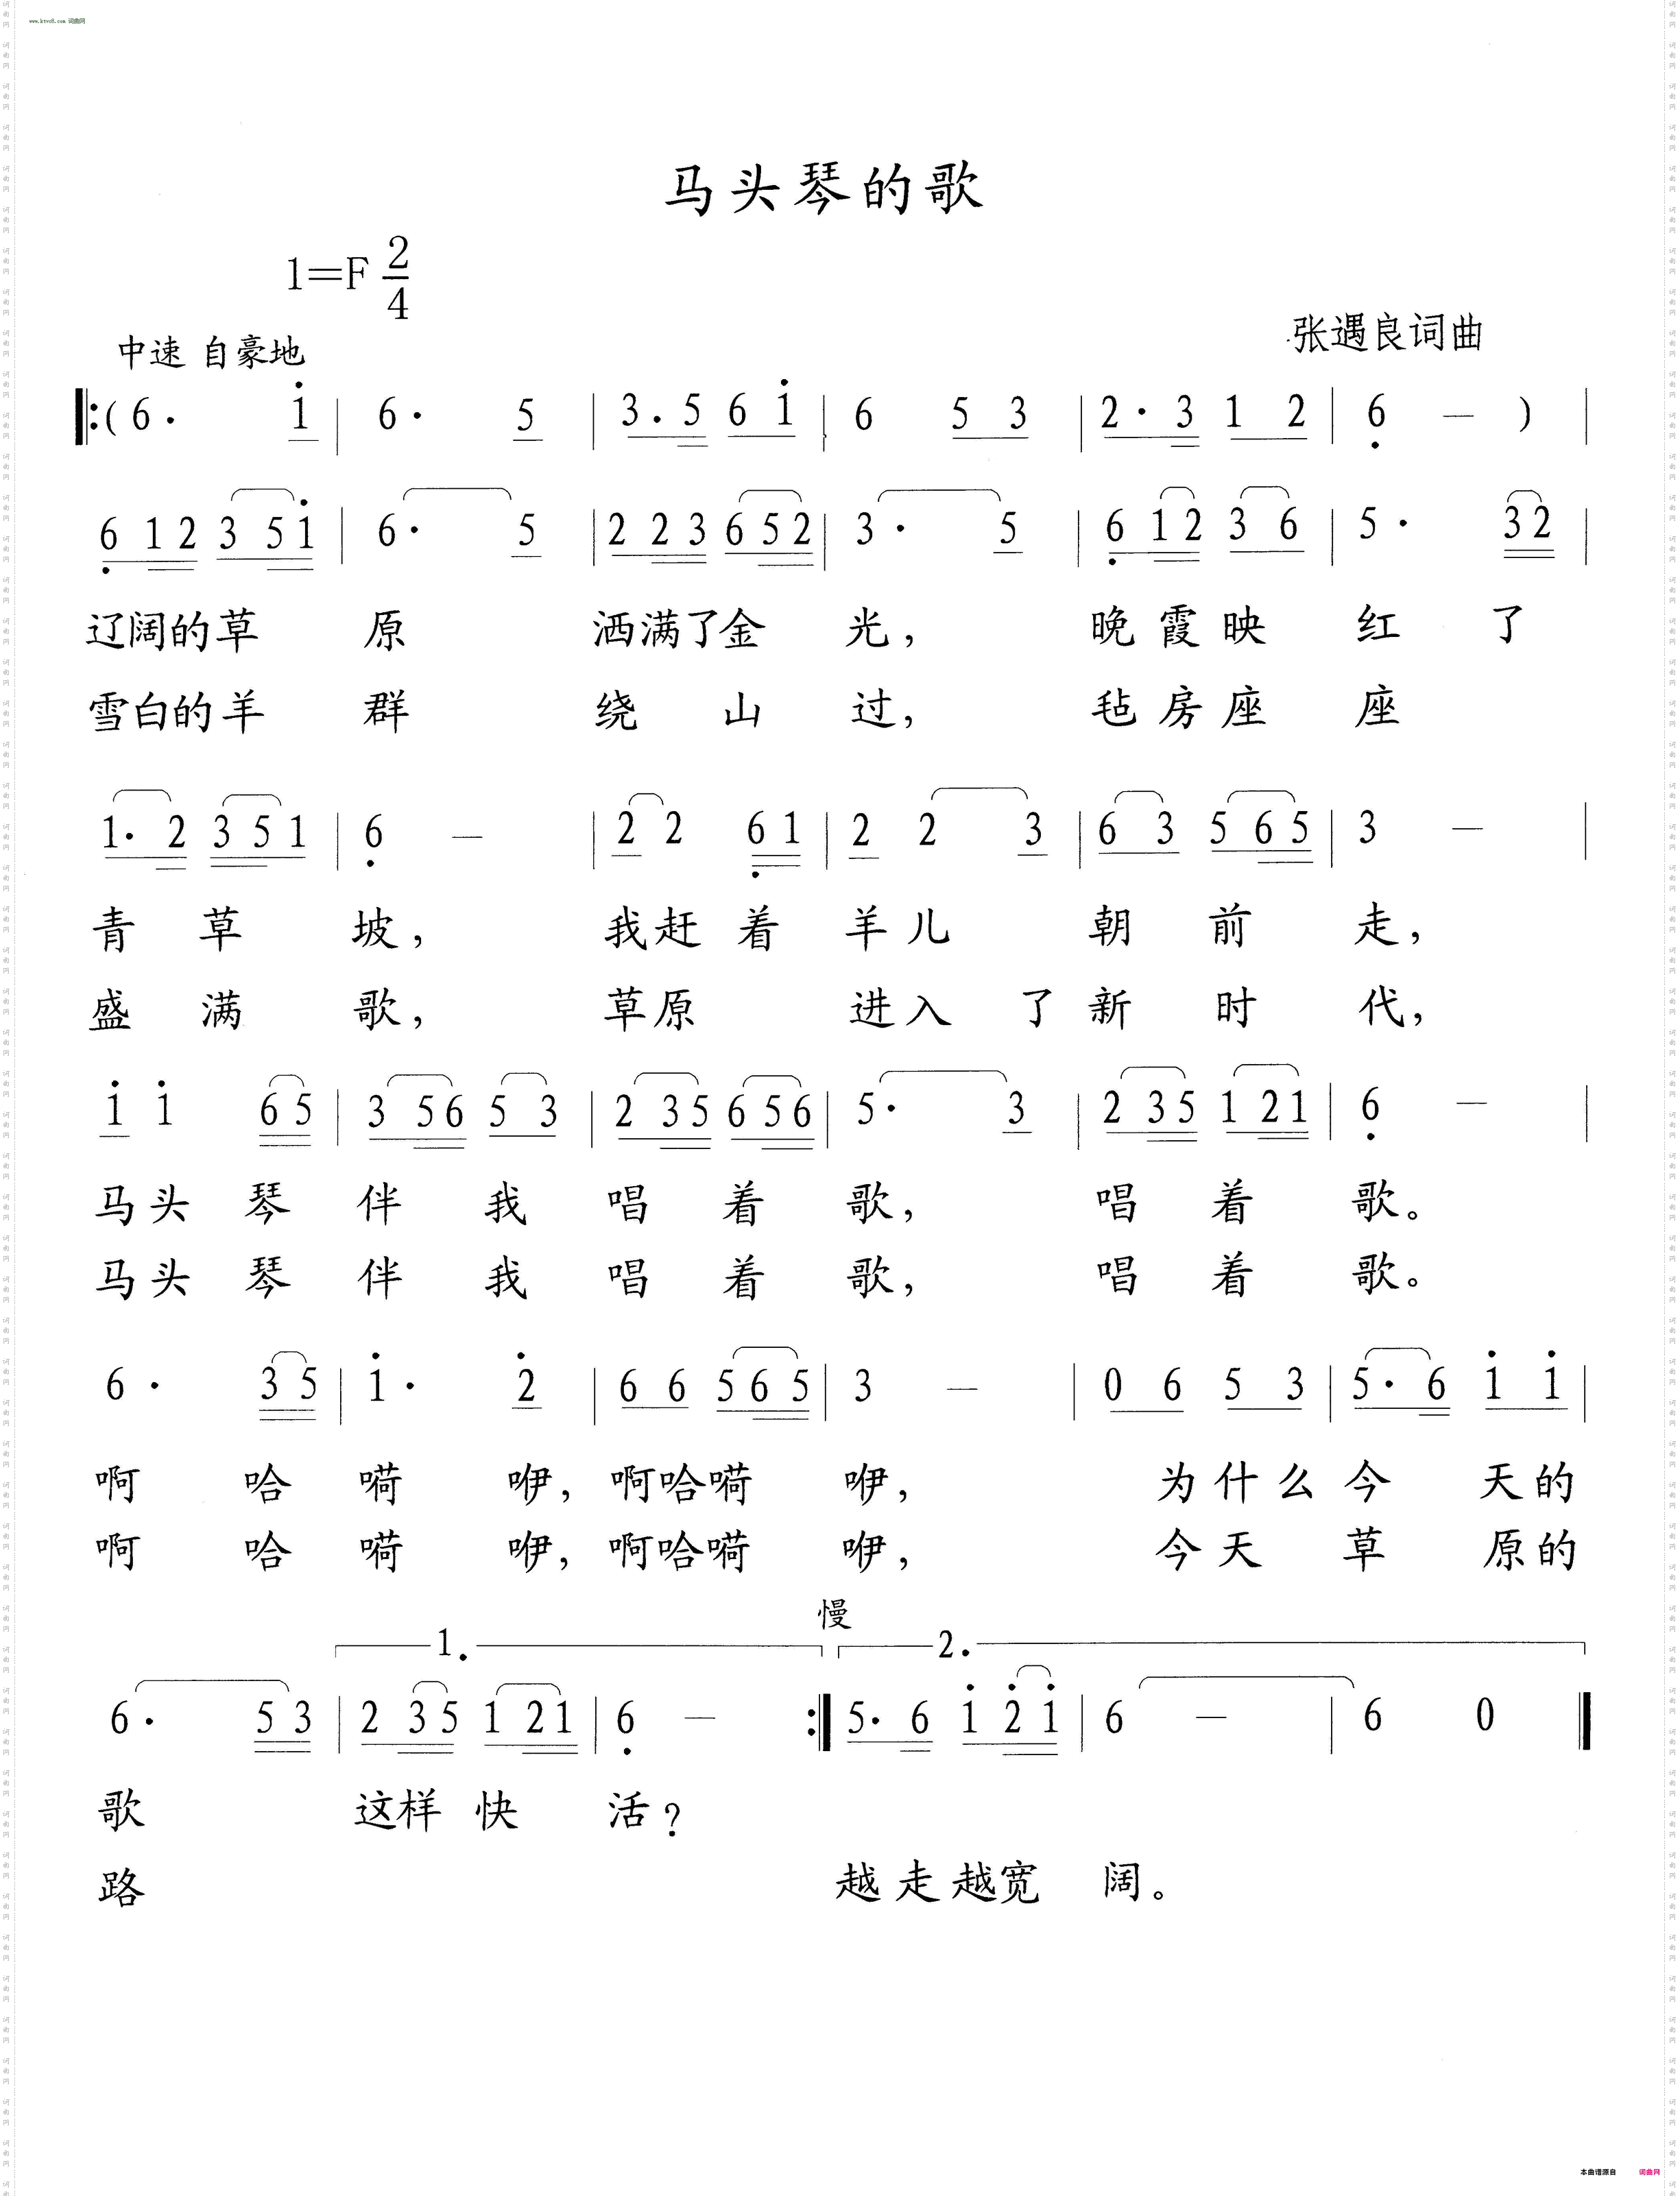 www.ktvc8.com 词曲网
马头琴的歌
1=F 2/4
中速 自豪地
张遇良词曲
(6. i | 6. 5 | 3.5 6 i | 6 5 3 | 2.3 1 2 | 6 — ) |
6 1 2 3 5 i | 6. 5 | 2 2 3 6 5 2 | 3. 5 | 6 1 2 3 6 | 5. 3 2 |
辽阔的草 原 洒满了金 光, 晚霞映 红 了
雪白的羊 群 绕 山 过, 毡房座 座
1. 2 3 5 1 | 6 — | 2 2 6 1 | 2 2 3 | 6 3 5 6 5 | 3 — |
青 草 坡, 我赶 着 羊儿 朝 前 走,
盛 满 歌, 草原 进入 了 新 时 代,
i i 6 5 | 3 5 6 5 3 | 2 3 5 6 5 6 | 5. 3 | 2 3 5 1 2 1 | 6 — |
马头 琴 伴 我 唱 着 歌, 唱 着 歌。
马头 琴 伴 我 唱 着 歌, 唱 着 歌。
6. 3 5 | i. 2 | 6 6 5 6 5 | 3 — | 0 6 5 3 | 5. 6 i i |
啊 哈 嗬 咿, 啊哈嗬 咿, 为什么今 天的
啊 哈 嗬 咿, 啊哈嗬 咿, 今天草 原的
慢
1. 2.
6. 5 3 | 2 3 5 1 2 1 | 6 — :| 5. 6 i 2 i | 6 — | 6 0 |
歌 这样 快 活?
路 越走越宽 阔。
本曲谱源自 词曲网